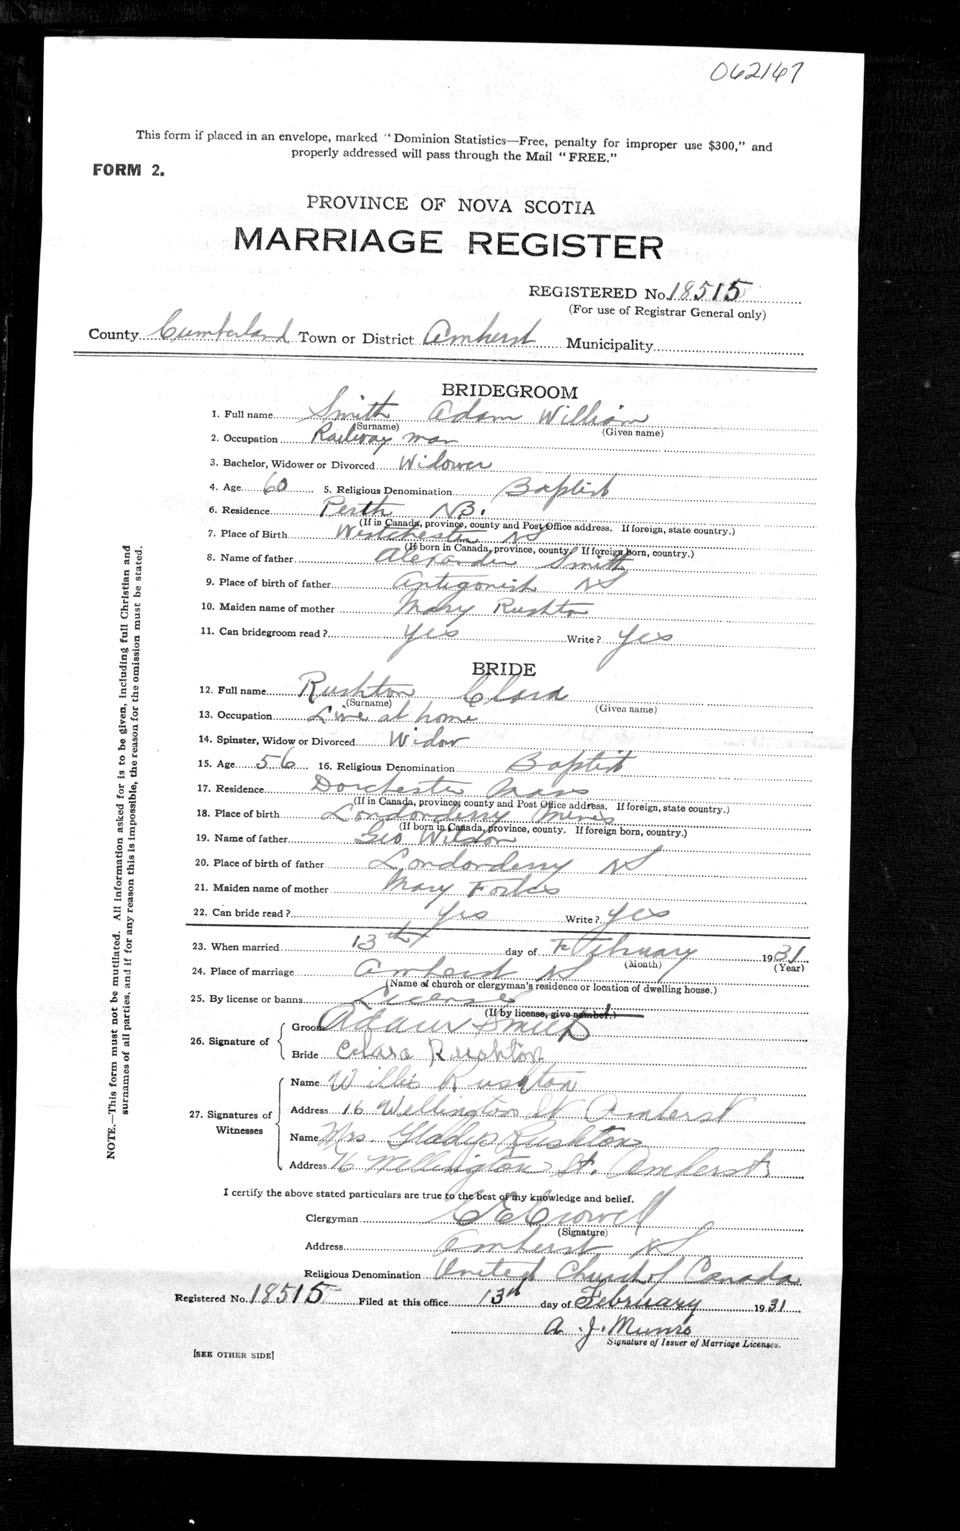 062167
This form if placed in an envelope, marked "Dominion Statistics—Free, penalty for improper use $300," and
properly addressed will pass through the Mail "FREE."
FORM 2.
PROVINCE OF NOVA SCOTIA
MARRIAGE REGISTER
REGISTERED No. 18515
(For use of Registrar General only)
County Cumberland Town or District Amherst Municipality
BRIDEGROOM
1. Full name Smith Adam William
(Surname) (Given name)
2. Occupation Railway man
3. Bachelor, Widower or Divorced Widower
4. Age 60 5. Religious Denomination Baptist
6. Residence Perth N.B.
(If in Canada, province, county and Post Office address. If foreign, state country.)
7. Place of Birth Westchester NS
(If born in Canada, province, county. If foreign born, country.)
8. Name of father Alexander Smith
9. Place of birth of father Antigonish NS
10. Maiden name of mother Mary Rushton
11. Can bridegroom read? Yes Write? Yes
BRIDE
12. Full name Rushton Clara
(Surname) (Given name)
13. Occupation Live at home
14. Spinster, Widow or Divorced Widow
15. Age 56 16. Religious Denomination Baptist
17. Residence Dorchester Mass
(If in Canada, province, county and Post Office address. If foreign, state country.)
18. Place of birth Londonderry Mines
(If born in Canada, province, county. If foreign born, country.)
19. Name of father Geo Wilson
20. Place of birth of father Londonderry NS
21. Maiden name of mother Mary Forbes
22. Can bride read? Yes Write? Yes
23. When married 13th day of February 1931
(Month) (Year)
24. Place of marriage Amherst NS
(Name of church or clergyman's residence or location of dwelling house.)
25. By license or banns License
(If by license, give number.)
26. Signature of
Groom Adam Smith
Bride Clara Rushton
27. Signatures of Witnesses
Name Willis Rushton
Address 16 Wellington St Amherst
Name Mrs. Gladys Rushton
Address 16 Wellington St. Amherst
I certify the above stated particulars are true to the best of my knowledge and belief.
Clergyman C E Crowell
(Signature)
Address Amherst NS
Religious Denomination United Church of Canada
Registered No. 18515 Filed at this office 13th day of February 1931
A. J. Munro
Signature of Issuer of Marriage Licenses.
[SEE OTHER SIDE]
NOTE.—This form must not be mutilated. All information asked for is to be given, including full Christian and
surnames of all parties, and if for any reason this is impossible, the reason for the omission must be stated.